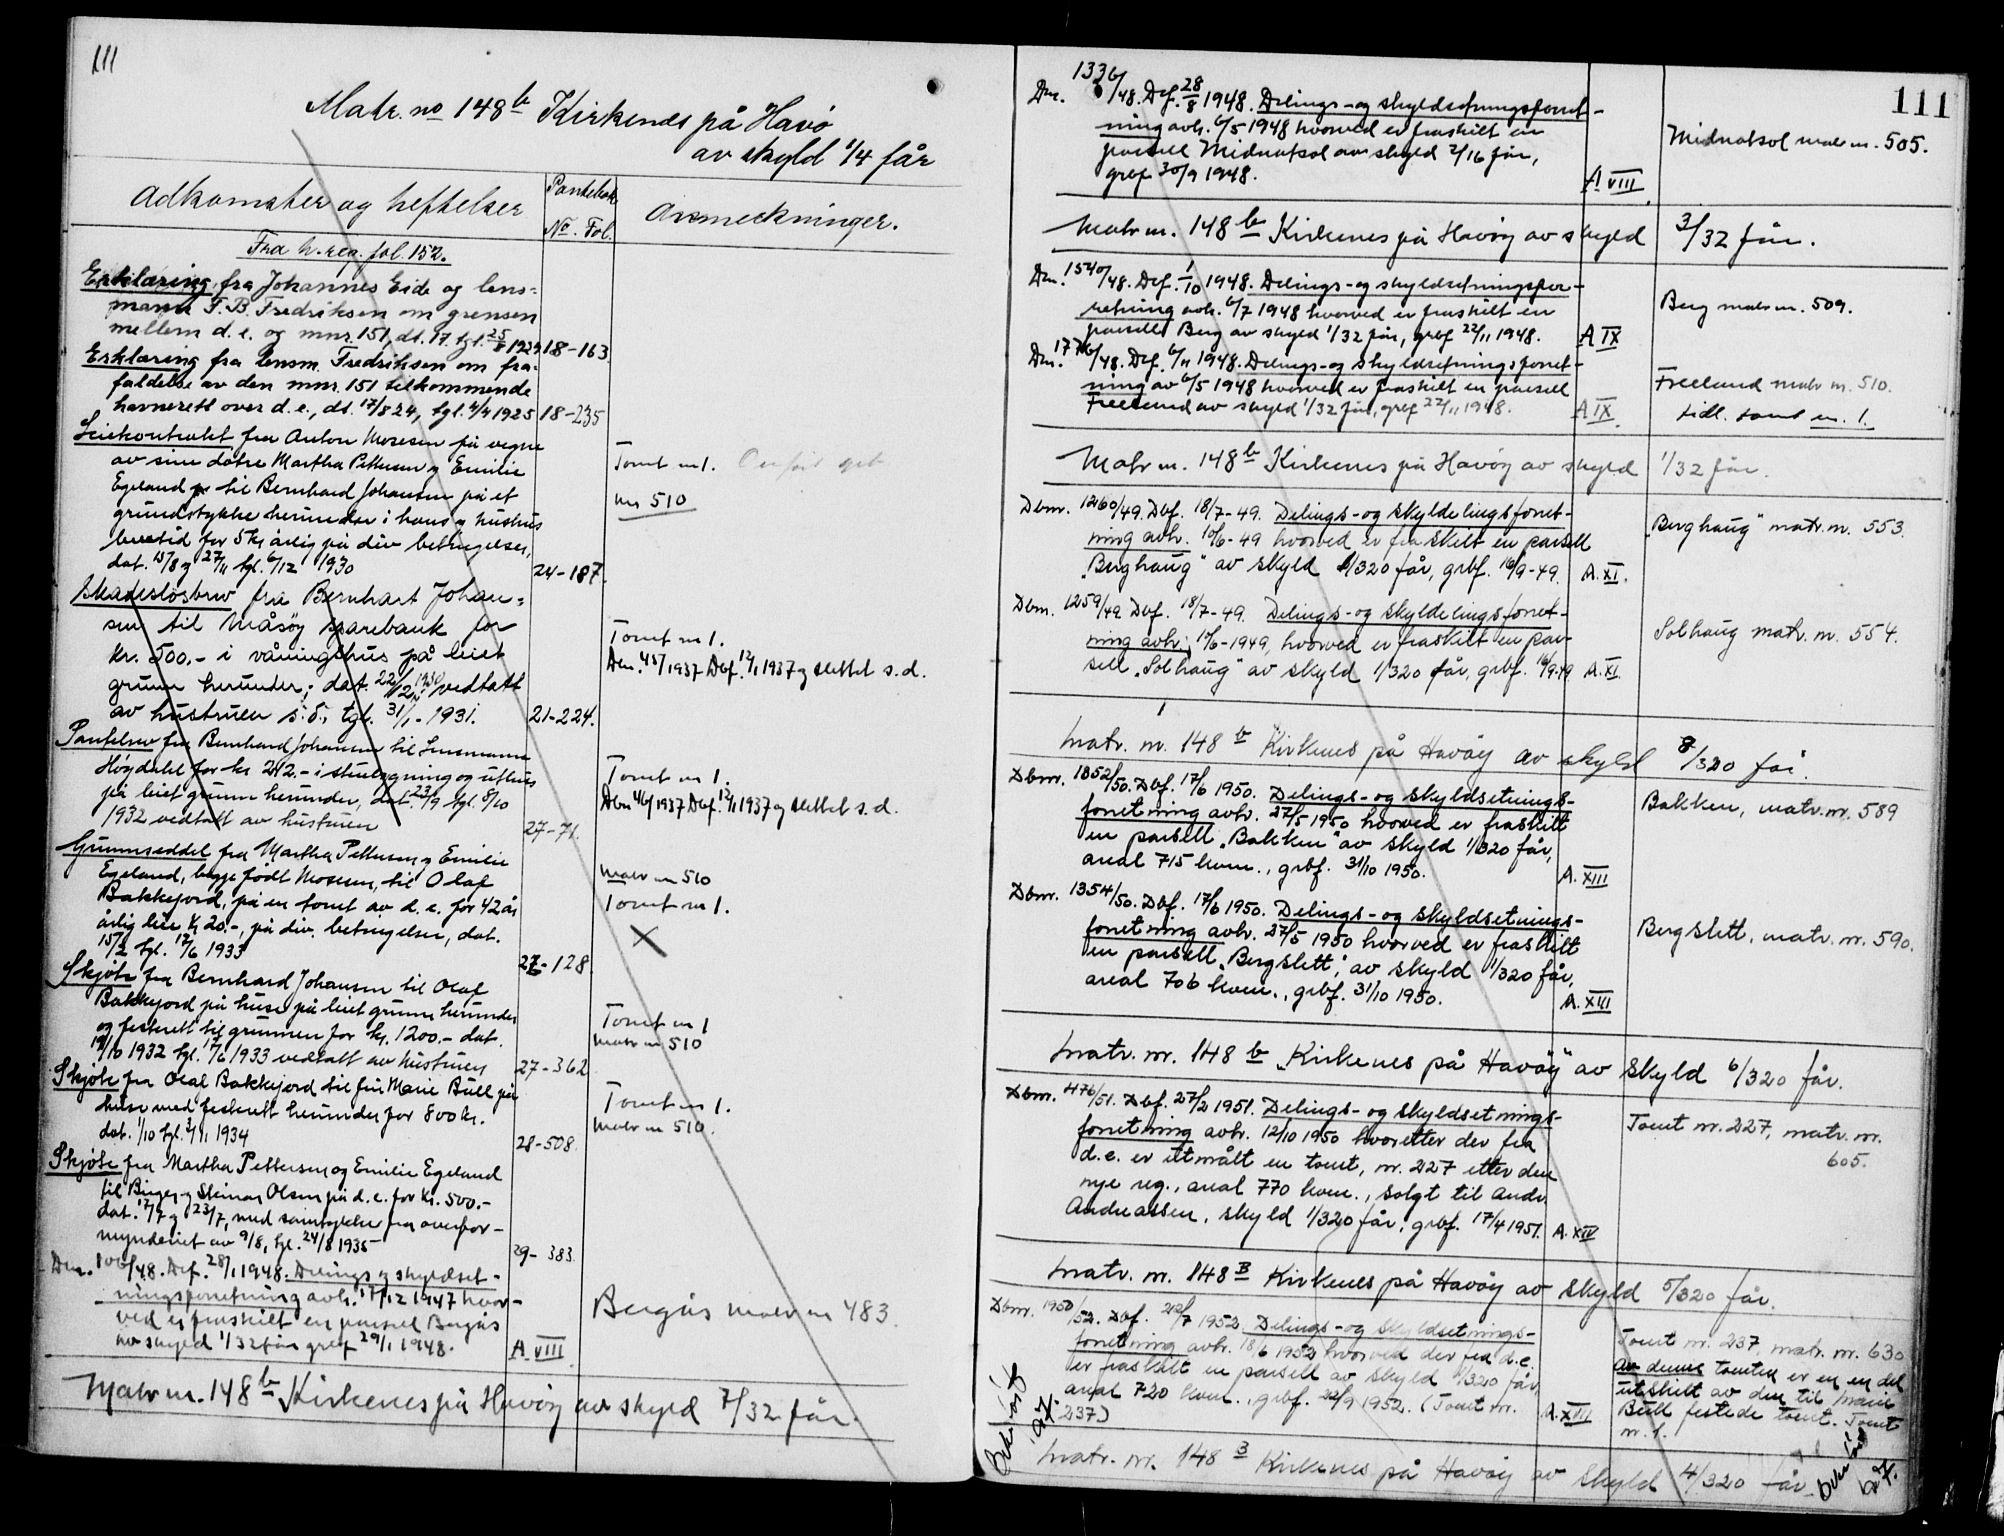 111
Matr. no 148b Kirkenes på Havö
av skyld 1/4 får
Adkomster og heftelser
Pantebok
No. Fol.
Anmerkninger.
Fra h. reg. fol. 152.
Erklæring fra Johannes Eide og lens-
mann F. B. Fredriksen om grensen
mellem d. e. og mnr. 151, dt. 17. tgl. 25/8 1924 18-163
Erklæring fra lensm. Fredriksen om fra-
faldelse av den mnr. 151 tilkommende
havnerett over d. e., dt. 17/8 24, tgl. 4/4 1925 18-235
Leiekontrakt fra Anton Mosesen på vegne
av sine døtre Martha Pettersen og Emilie
Egeland til Bernhard Johansen på et
grundstykke herunder i hans og hustrus
levetid for 5 kr årlig på div betingelser,
dat. 15/8 og 27/11 tgl. 6/12 1930
24-187.
Tomt nr 1.
mnr 510
Skadesløsbrev fra Bernhart Johan-
sen til Måsöy sparebank for
kr. 500.- i våningshus på leiet
grunn herunder; dat. 22/12 1930 vedtatt
av hustruen s. d., tgl. 31/1 - 1931.
21-224.
Tomt nr 1.
Dnr. 45/1937 Dbf. 12/1 1937 og slettet s. d.
Pantebrev fra Bernhard Johansen til Lensmann
Höydahl for kr 242.- i stuebygning og uthus
på leiet grunn herunder, dat. 23/9 tgl. 8/10
1932 vedtatt av hustruen
27-71.
Tomt nr 1.
Dbnr 46/1937 Dbf. 12/1 1937 og slettet s. d.
Grunnseddel fra Martha Pettersen og Emilie
Egeland, begge født Mosesen, til Olaf
Bakkejord, på en tomt av d. e. for 42 år
årlig leie kr 20.-, på div. betingelser, dat.
15/2 tgl. 17/6 1933
27-128.
matr nr 510
Tomt nr 1.
Skjöte fra Bernhard Johansen til Olaf
Bakkejord på huse på leiet grunn herunder
og festerett til grunnen for kr. 1200.- dat.
19/10 1932 tgl. 17/6 1933 vedtatt av hustruen
27-362
Tomt nr 1
matr nr 510
Skjöte fra Olaf Bakkejord til fru Marie Bull på
huse med festerett herunder for 800 kr.
dat. 1/10 tgl. 3/11 1934
28-508.
Tomt nr 1.
matr nr 510.
Skjöte fra Martha Pettersen og Emilie Egeland
til Birger og Steinar Olsen på d. e. for kr. 500.-
dat. 17/7 og 23/7, med samtykke fra overfor-
mynderiet av 9/8, tgl. 24/8 1935
29-383.
Dnr. 106/48. Dbf. 28/1 1948. Delings og skyldset-
ningsforretning avh. 17/12 1947 hvor-
ved er fraskilt en parsell Bergås
av skyld 1/32 får grbf 29/1 1948.
A VIII
Bergås matr nr 483.
Matr nr. 148b Kirkenes på Havöy av skyld 7/32 får.
111
Dnr. 1336/48. Dbf. 28/8 1948. Delings- og skyldsetningsforret-
ning avh. 6/5 1948 hvorved er fraskilt en
parsell Midnatsol av skyld 2/16 får,
grbf 30/9 1948.
A VIII
Midnatsol matr nr. 505.
Matr nr. 148b Kirkenes på Havöy av skyld 3/32 får.
Dnr. 1540/48. Dbf. 1/10 1948. Delings- og skyldsetningsfor-
retning avh. 6/7 1948 hvorved er fraskilt en
parsell Berg av skyld 1/32 får, grbf 22/11 1948.
A IX
Berg matr nr. 509.
Dnr. 1776/48. Dbf. 6/11 1948. Delings- og skyldsetningsforret-
ning av 6/5 1948 hvorved er fraskilt en parsell
Freelund av skyld 1/32 får, grbf 22/11 1948.
A IX.
Freelund matr nr. 510.
tidl. tomt nr. 1.
Matr nr. 148b Kirkenes på Havöy av skyld 1/32 får.
Dbnr. 1260/49. Dbf. 18/7-49. Delings- og skyldelingsforret-
ning avh. 10/6-49 hvorved er fraskilt en parsell
"Berghaug" av skyld 1/320 får, grbf. 16/9-49.
A. XI.
"Berghaug" matr. nr. 553
Dbnr. 1259/49 Dbf. 18/7-49. Delings- og skyldelingsforret-
ning avh. 10/6-1949, hvorved er fraskilt en par-
sell "Solhaug" av skyld 1/320 får, grbf. 16/9-49
A. XI.
Solhaug matr. nr. 554.
Matr. nr. 148b Kirkenes på Havöy av skyld 8/320 får.
Dbnr. 1352/50. Dbf. 17/6 1950. Delings- og skyldsetnings-
forretning avh. 27/5 1950 hvorved er fraskilt
en parsell "Bakken" av skyld 1/320 får,
areal 715 kvm., grbf. 31/10 1950.
A. XIII
Bakken, matr. nr. 589
Dbnr. 1354/50. Dbf. 17/6 1950. Delings- og skyldsetnings-
forretning avh. 27/5 1950 hvorved er fraskilt
en parsell "Bergslett", av skyld 1/320 får,
areal 706 kvm., grbf. 31/10 1950.
A. XIII
Bergslett, matr. nr. 590.
Matr. nr. 148 b "Kirkenes på Havöy" av skyld 6/320 får.
Dbnr. 476/51. Dbf. 27/2 1951. Delings- og skyldsetnings-
forretning avh. 12/10 1950 hvoretter der fra
d. e. er utmålt en tomt, nr. 227 etter den
nye reg., areal 770 kvm., solgt til Andr.
Andreassen, skyld 1/320 får, grbf. 17/4 1951.
A. XIV
Tomt nr. 227, matr. nr.
605.
Matr. nr. 148 B Kirkenes på Havöy av skyld 5/320 får.
Dbnr. 1950/52. Dbf. 22/7 1952. Delings- og skyldsetnings-
forretning avh. 18/6 1952 hvorved der fra d. e.
er fraskilt en parsell av skyld 1/320 får,
areal 720 kvm., grbf. 22/9 1952. (Tomt nr.
237)
A. XIII
Tomt nr. 237, matr. nr. 630
av denne tomten er en del
utskilt av den til Marie
Bull festede tomt. Tomt
nr. 1.
Matr. nr. 148 B Kirkenes på Havöy av skyld 4/320 får